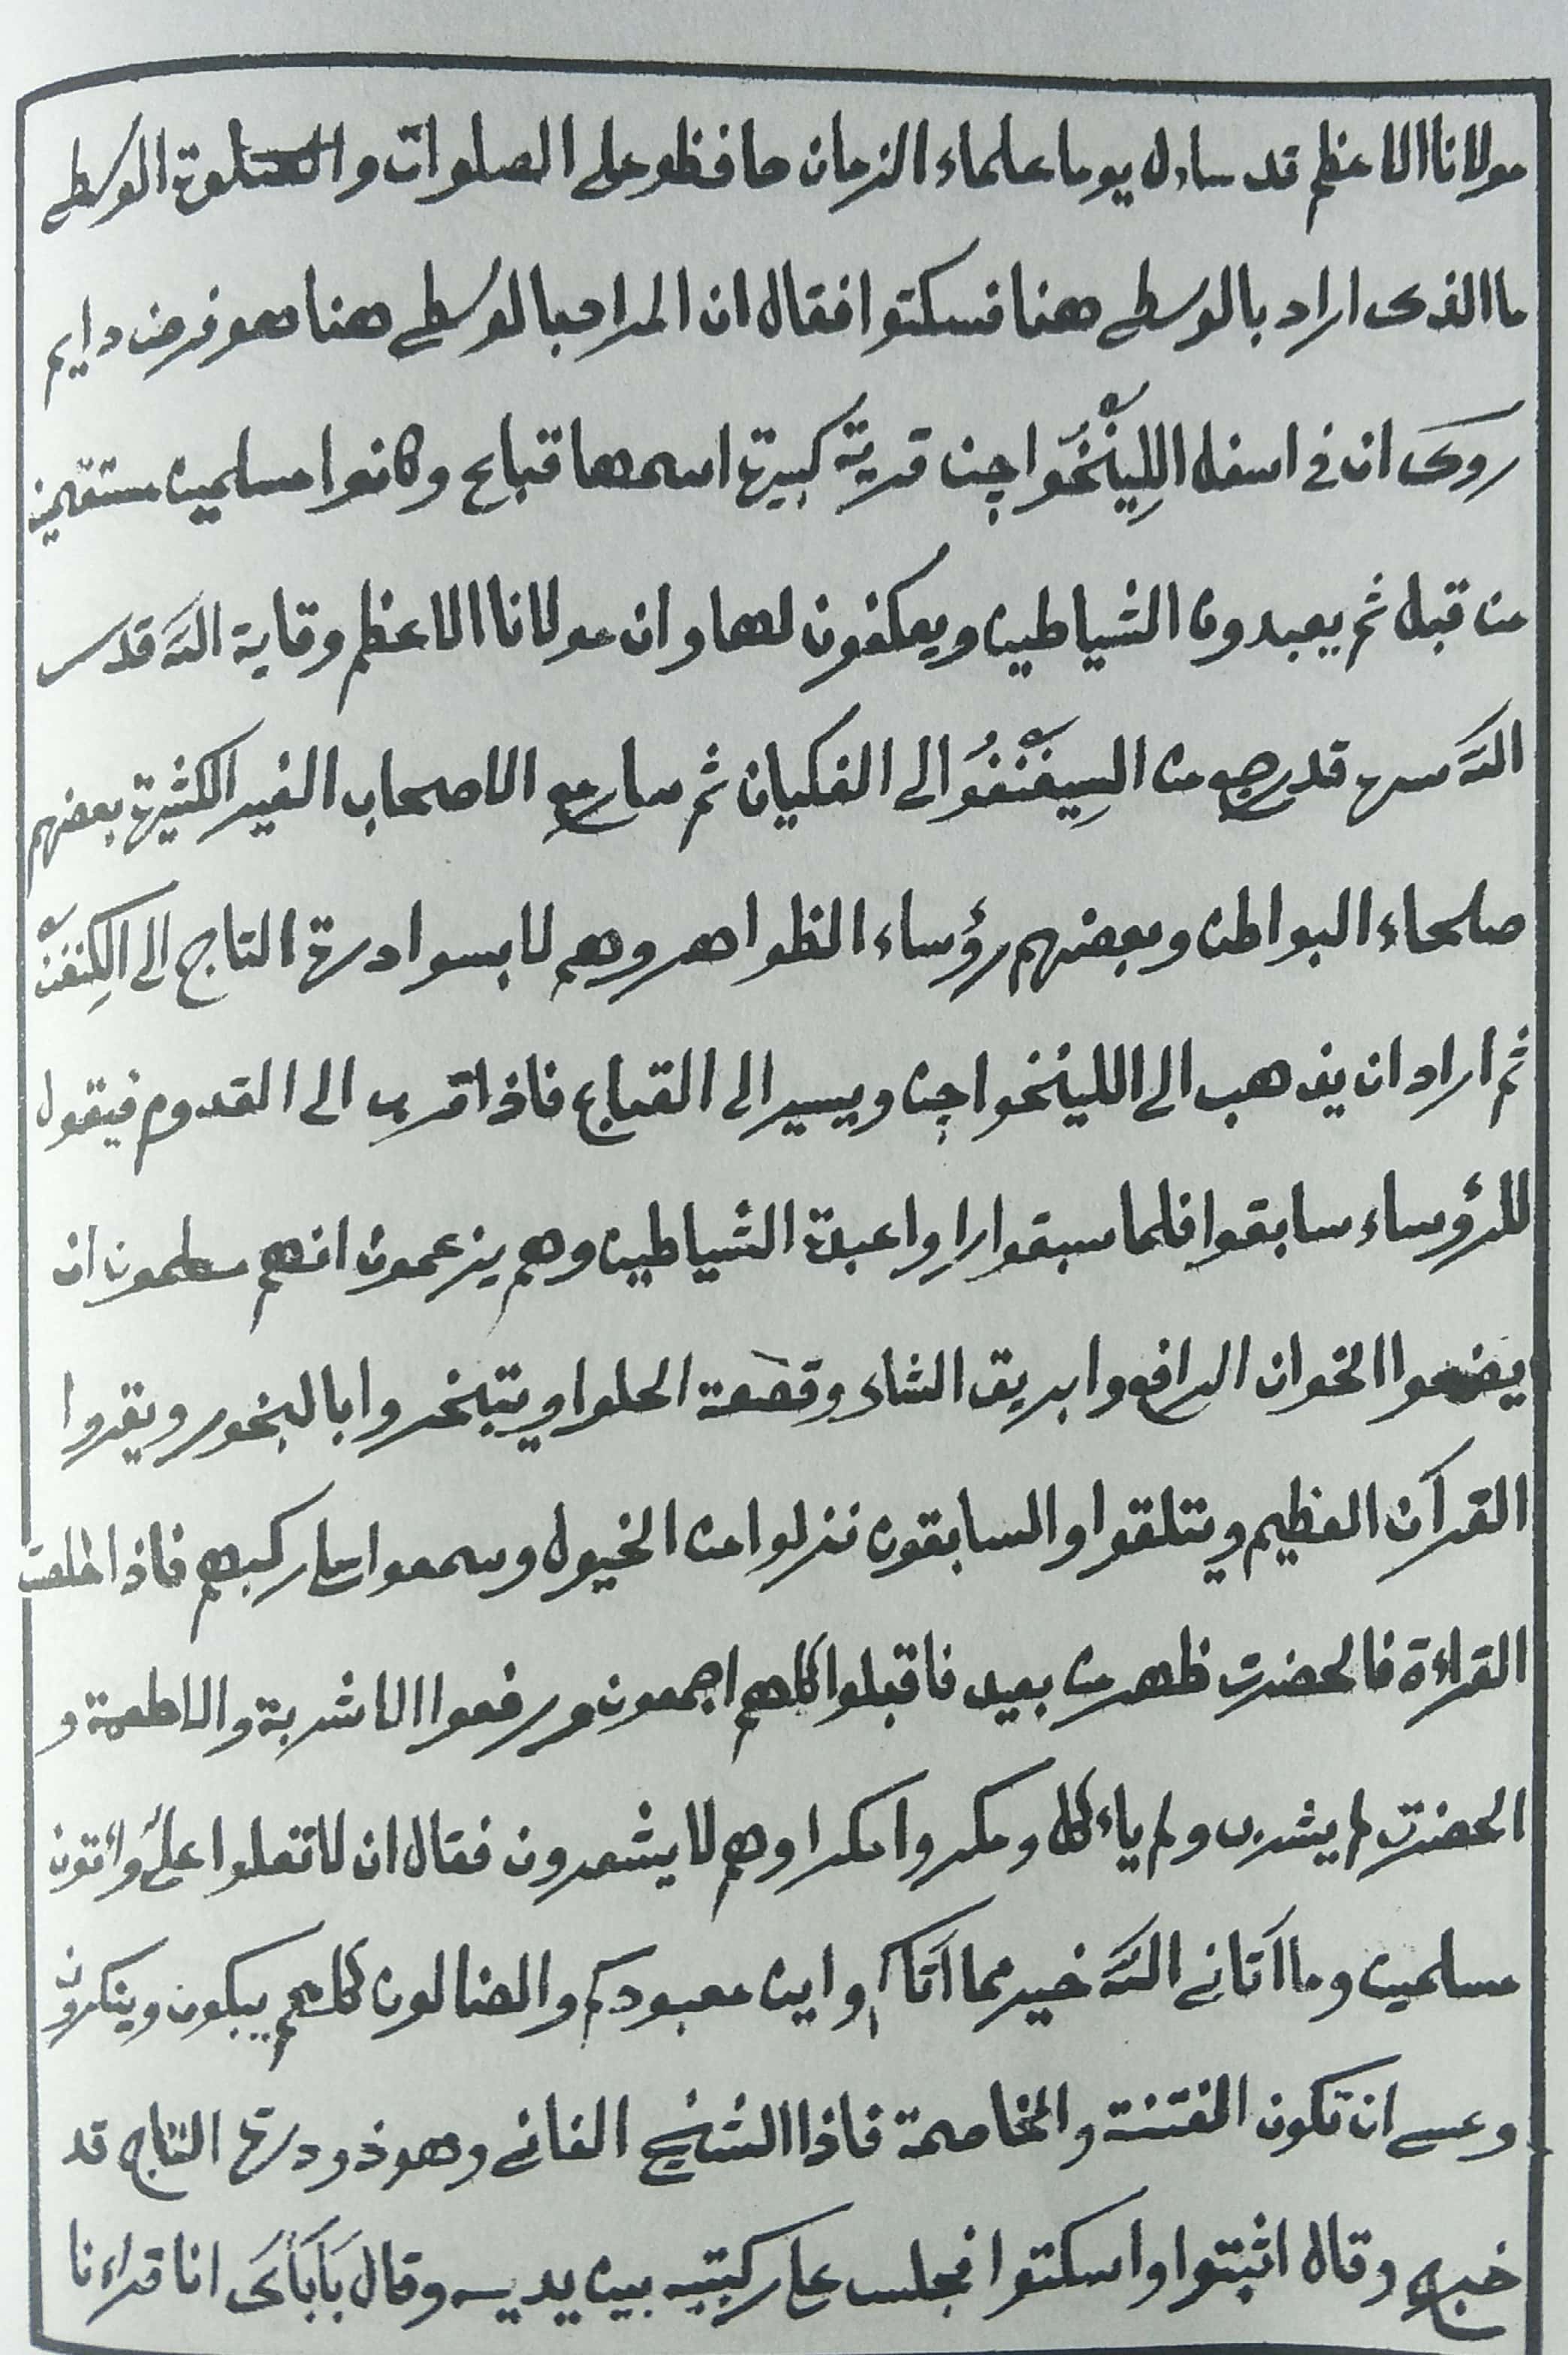 مولانا الاعظم قد ساءل يوما علماء الزمان حافظو على الصلوات والصلوة الوسطى
ما الذى اراد بالوسطى هنا فسكتوا فقال ان المراد بالوسطى هنا هو فرض دايم
روى ان فى اسفل اللِينْخُوا جن قرية كبيرة اسمها قباع وكانوا مسلمين مستقيمين
من قبل ثم يعبدون الشياطين ويعكفون لها وان مولانا الاعظم وقاية الله قدس
الله سره قد رجع من السِيغَنْغُو الى الفكيان ثم سار مع الاصحاب الغير الكثيرة بعضهم
صلحاء البواطن وبعضهم رؤساء الظواهر وهم لابسوا درة التاج الى الكِنغن
ثم اراد ان يذهب الى اللينخوا جن ويسير الى القباع فاذا قرب الى القدوم فيقول
للرؤساء سابقوا فلما سبقوا راوا عبدة الشياطين وهم يزعمون انهم مسلمون ان
يضعوا الخوان الرافع وابريق الشاء وقصعة الحلوا ويتبخروا بالبخور ويقروا
القرآن العظيم ويتلقوا والسابقون نزلوا من الخيول وسمعوا على ركبهم فاذا
القراءة فالحضرت ظهر من بعيد فاقبلوا كلهم اجمعون ورفعوا الاشربة والاطعمة و
الحضرت لم يشرب ولم ياءكل ومكروا مكرا وهم لا يشعرون فقال ان لا تعلوا علىَّ وائتون
مسلمين وما آتانى الله خير مما آتاكم واين معبودكم والضالون كلهم يبكون وينكرون
وعسى ان تكون الفتنة والمخاصمة فاذا الشيخ الفانى وهو ذو درة التاج قد
خرج وقال اثبتوا واسكتوا فجلس على ركبتيه بين يديه وقال بَابَاىَ انا قراءنا